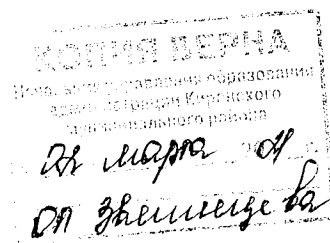 КОПИЯ ВЕРНА
управления образования
администрации Киренского
муниципального района
марта
ОП Звягинцева